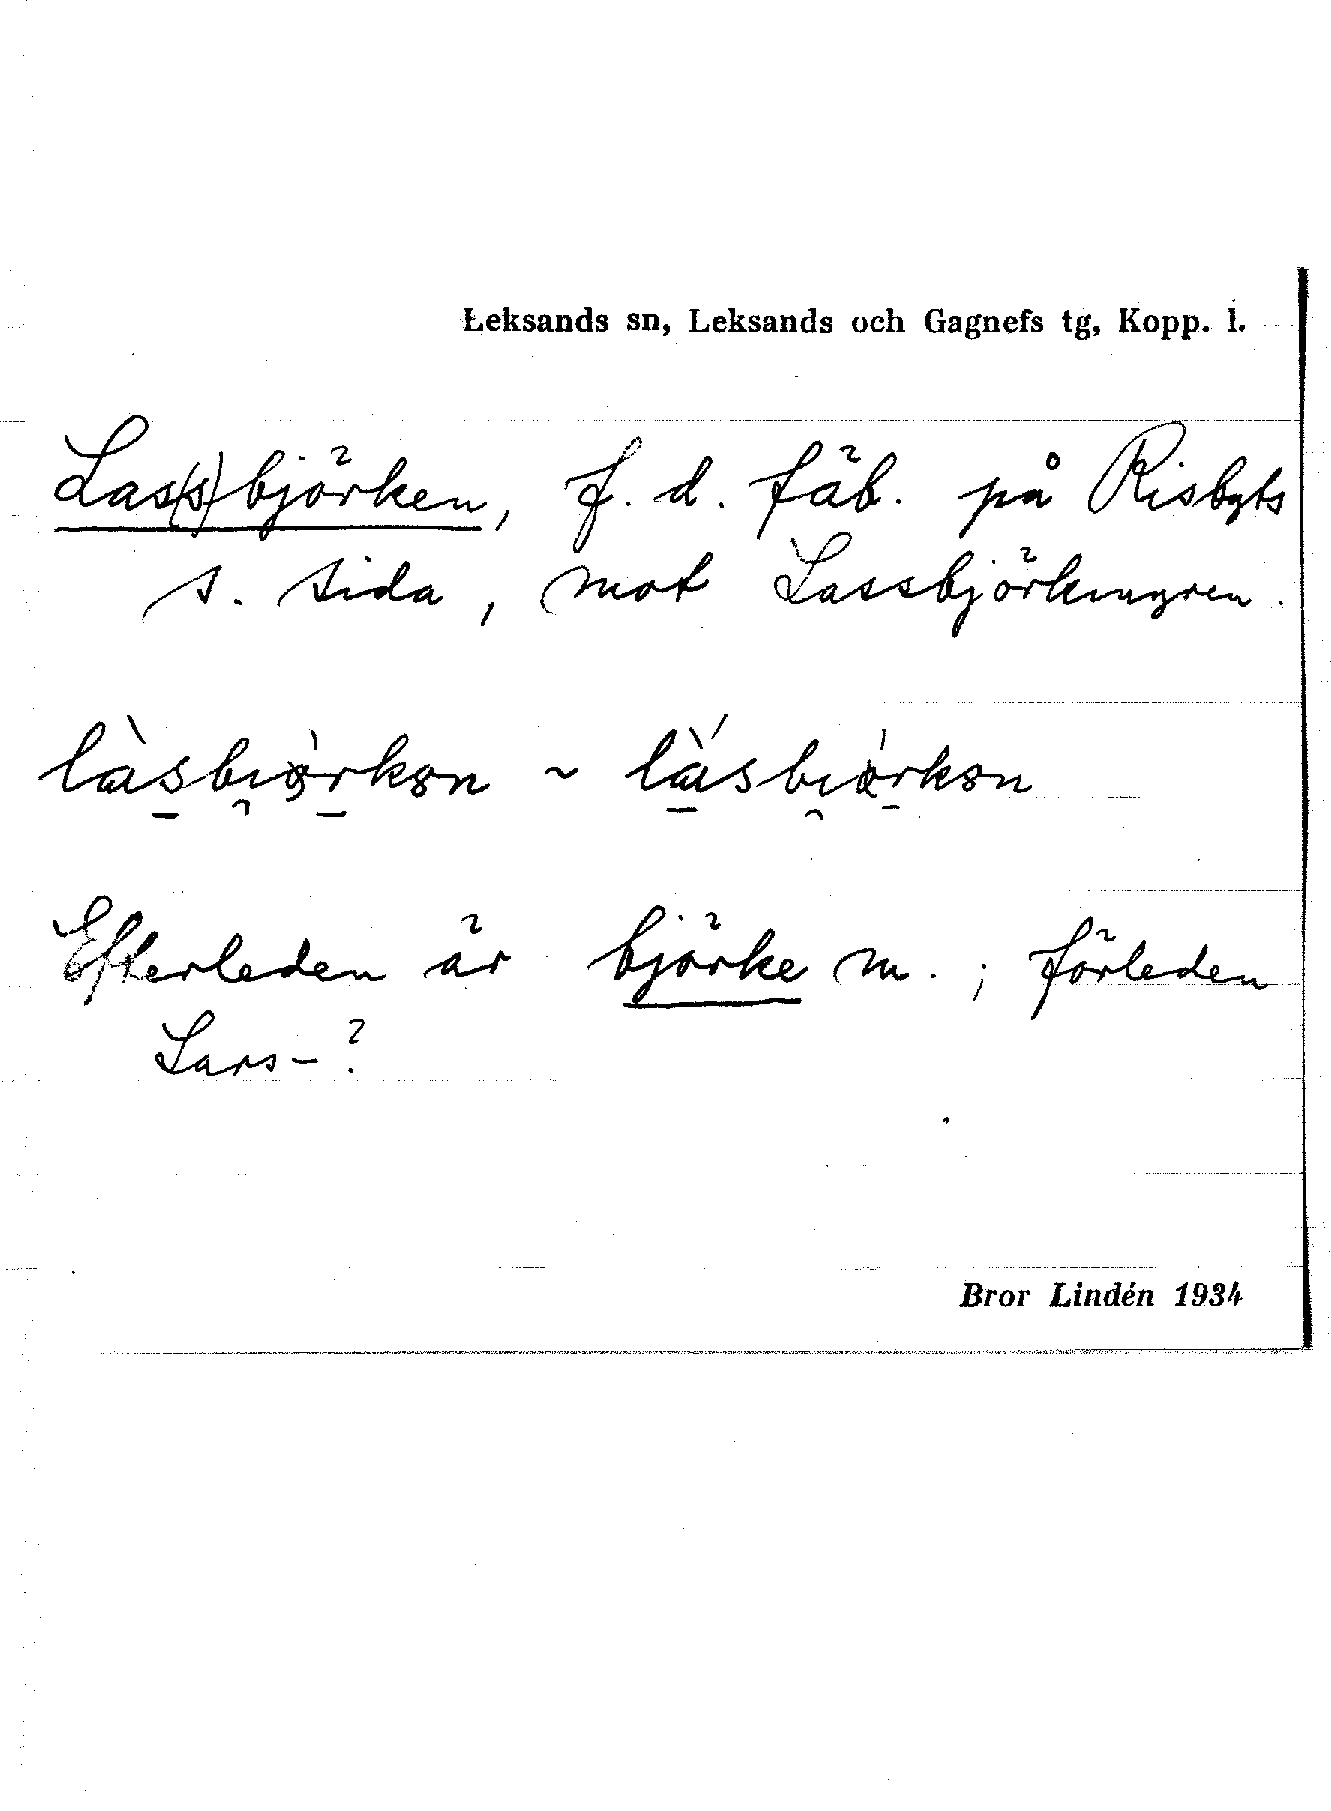 Leksands sn, Leksands och Gagnefs tg, Kopp. l.
Las(s)björken, f. d. fäb. på Risbyts
s. sida, mot Lassbjörkmyren.
Efterleden är björke m. ; förleden
Lars-?
Bror Lindén 1934